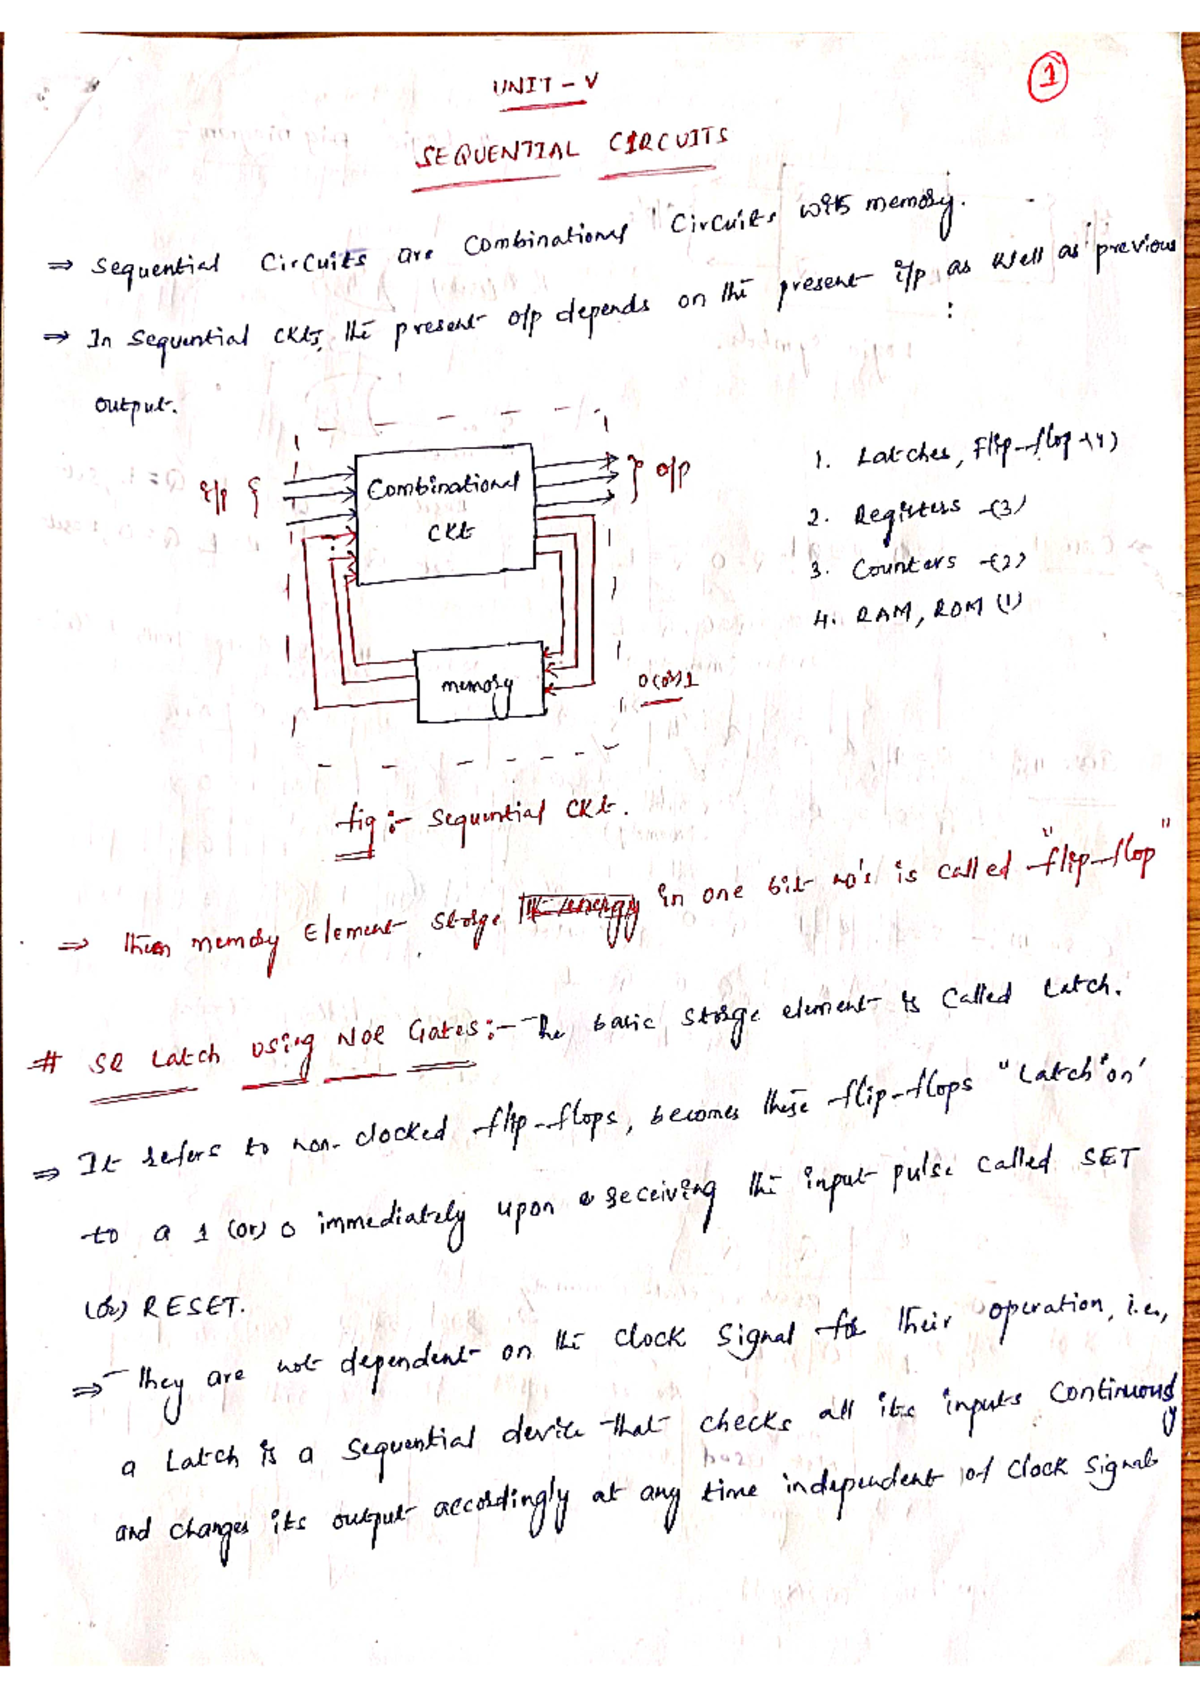 1
UNIT - V
SEQUENTIAL CIRCUITS
⇒ Sequential Circuits are Combinational Circuits with memory.
⇒ In Sequential CKts, the present o/p depends on the present i/p as well as previous
output.
i/p {
Combinational
CKt
} o/p
memory
0 (or) 1
1. Latches, Flip-flop -(4)
2. Registers -(3)
3. Counters -(2)
4. RAM, ROM (1)
fig :- Sequential CKt.
⇒ memory Element storge energy in one bit no's is called "flip-flop"
# SR Latch using NOR Gates:- The basic storge element is called Latch.
⇒ It refers to non-clocked flip-flops, becomes these flip-flops "Latch on'
to a 1 (or) 0 immediately upon receiving the input pulse called SET
(or) RESET.
⇒ They are not dependent on the clock signal for their operation, i.e.,
a Latch is a sequential device that checks all its inputs continuously
and changes its output accordingly at any time independent of clock signal